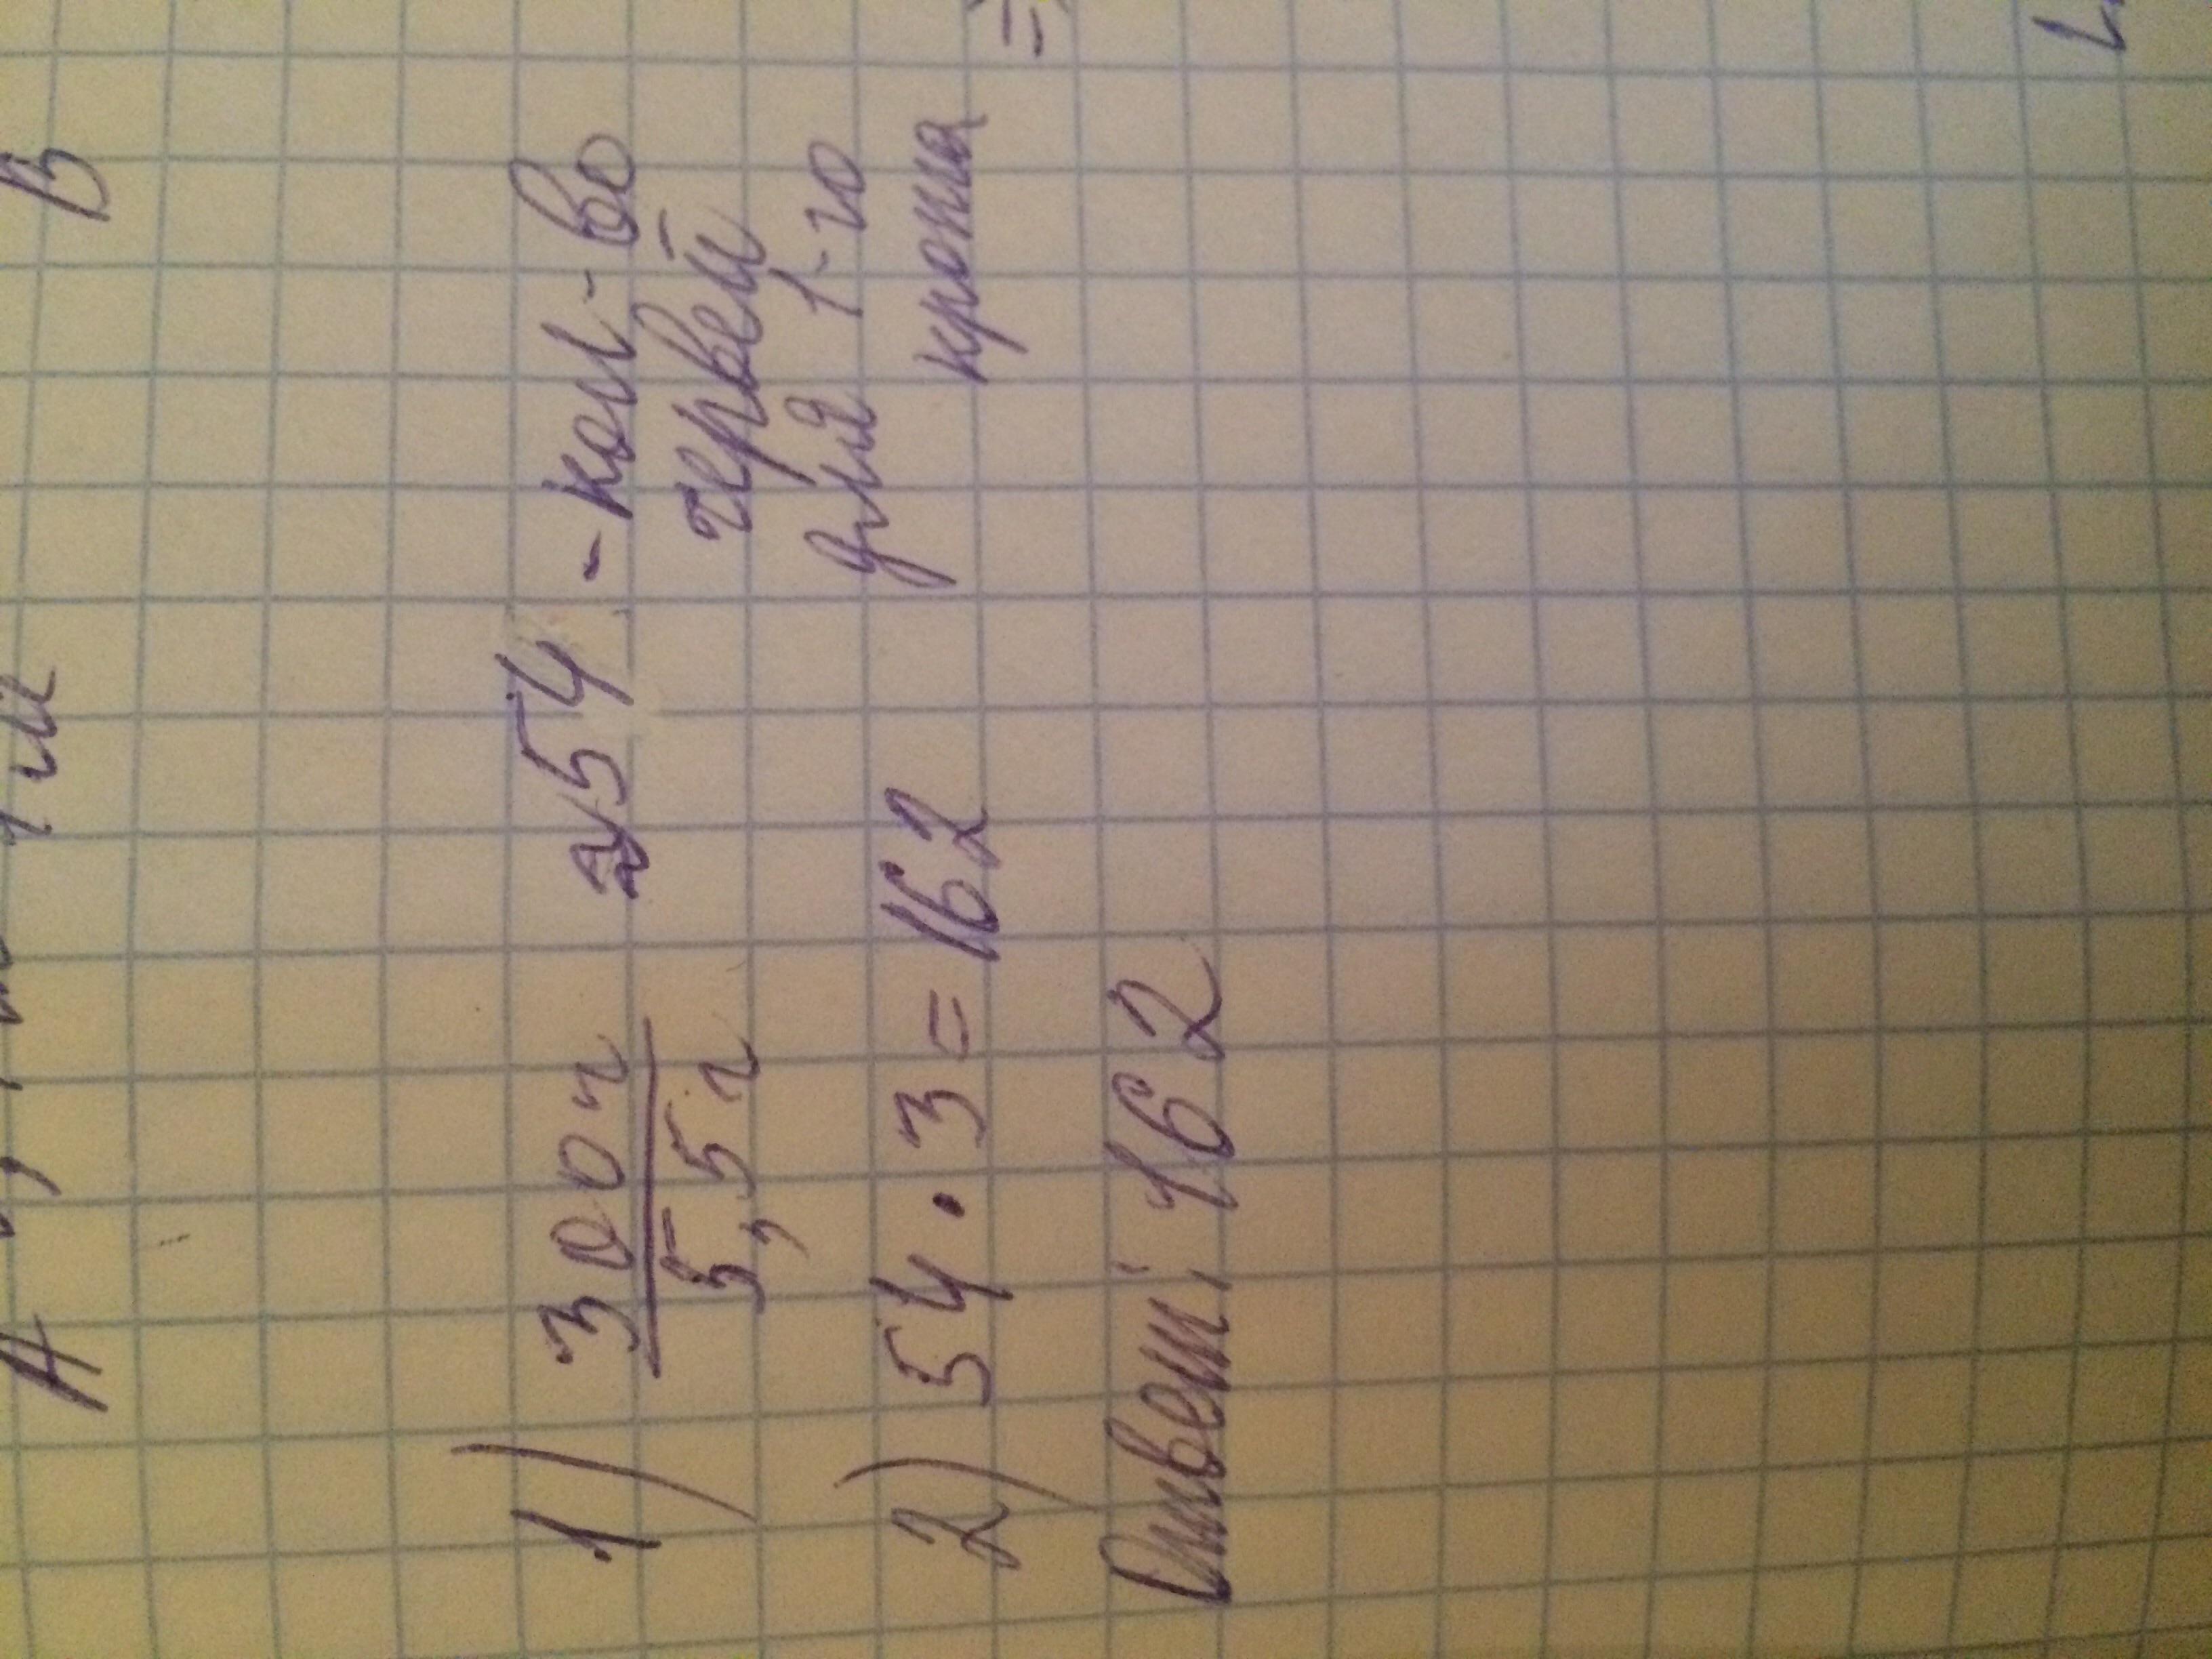 А В
1) 300г / 5,5г ≈ 54 - кол-во
червей
для 1-го
крота =>
2) 54 · 3 = 162
Ответ: 162